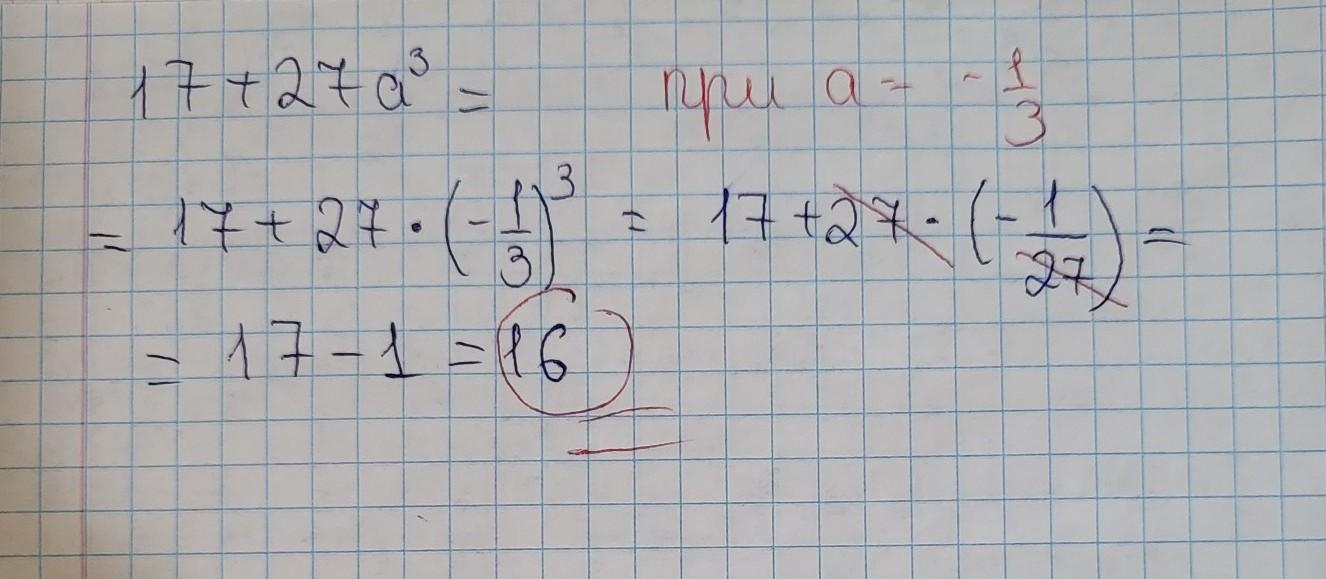 17+27a³ = при a = -1/3
= 17+27·(-1/3)³ = 17+27·(-1/27) =
= 17-1 = 16